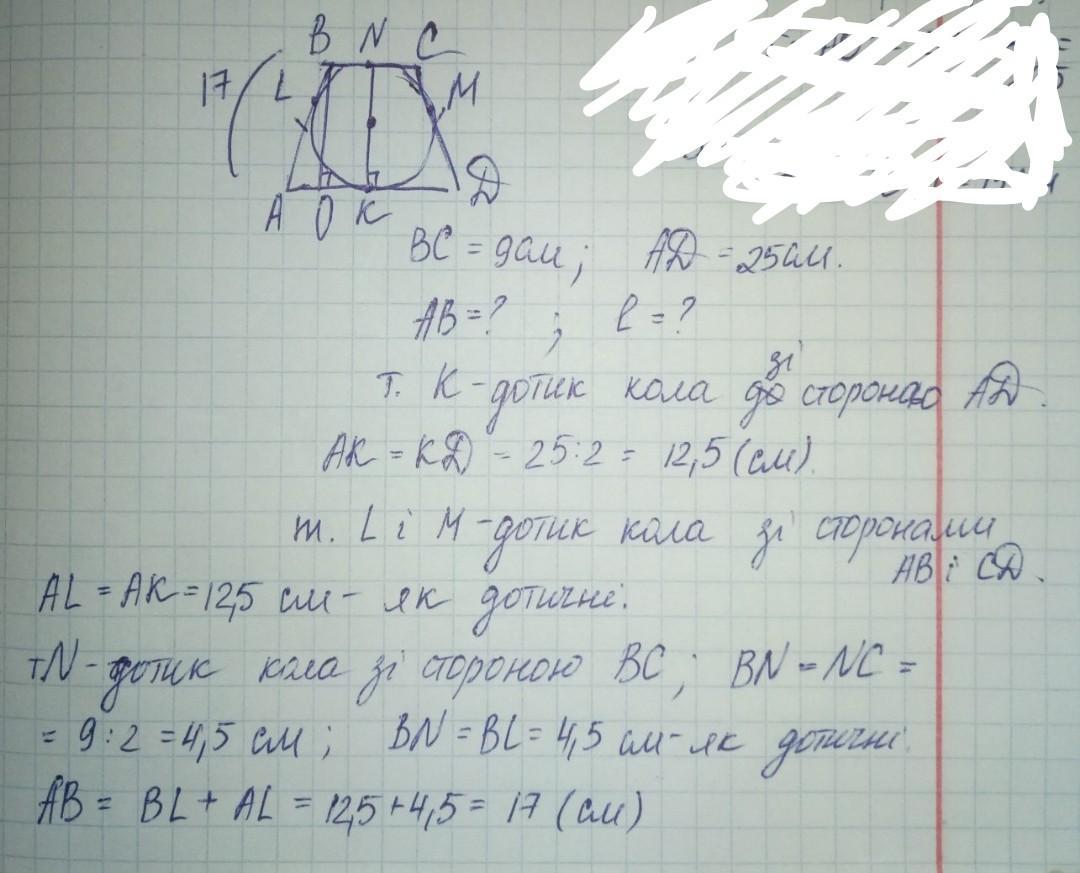 B N C
17 L M
A O K D
BC = 9см ; AD = 25см.
AB = ? ; l = ?
зі
т. К - дотик кола до стороною AD.
AK = KD = 25:2 = 12,5 (см).
т. L і M - дотик кола зі сторонами
AB і CD.
AL = AK = 12,5 см - як дотичні.
тN - дотик кола зі стороною BC ; BN = NC =
= 9:2 = 4,5 см ; BN = BL = 4,5 см - як дотичні.
AB = BL + AL = 12,5 + 4,5 = 17 (см)